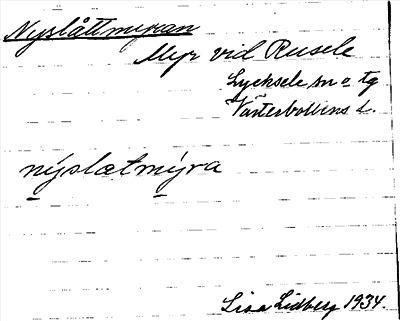 Nyslåttmyran
Myr vid Rusele
Lycksele sn o. tg
Västerbottens l.
nýslætmýra
Lisa Lidberg 1934.